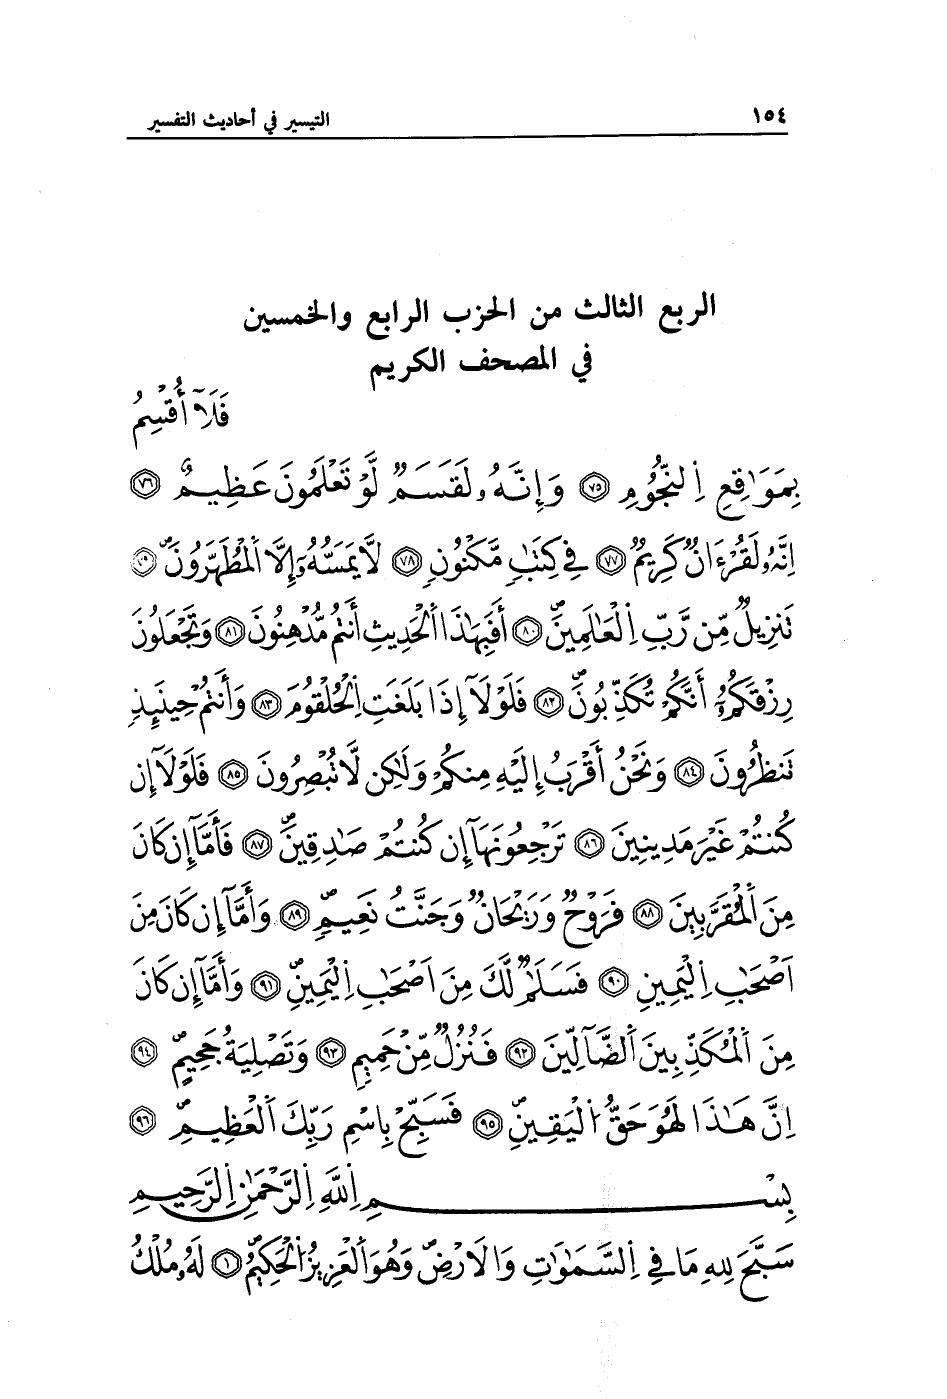 ١٥٤ التيسير في أحاديث التفسير
الربع الثالث من الحزب الرابع والخمسين
في المصحف الكريم
فَلَآ أُقْسِمُ
بِمَوَٰقِعِ اِ۬لنُّجُومِ ٧٥ وَإِنَّهُۥ لَقَسَمٌ لَّوْ تَعْلَمُونَ عَظِيمٌ ٧٦
اِنَّهُۥ لَقُرْءَانٌ كَرِيمٌ ٧٧ فِے كِتَٰبٍ مَّكْنُونٍ ٧٨ لَّا يَمَسُّهُۥٓ إِلَّا اَ۬لْمُطَهَّرُونَ ٧٩
تَنزِيلٌ مِّن رَّبِّ اِ۬لْعَٰلَمِينَ ٨٠ أَفَبِهَٰذَا اَ۬لْحَدِيثِ أَنتُم مُّدْهِنُونَ ٨١ وَتَجْعَلُونَ
رِزْقَكُمُۥٓ أَنَّكُمْ تُكَذِّبُونَ ٨٢ فَلَوْلَآ إِذَا بَلَغَتِ اِ۬لْحُلْقُومَ ٨٣ وَأَنتُمْ حِينَئِذٍ
تَنظُرُونَ ٨٤ وَنَحْنُ أَقْرَبُ إِلَيْهِ مِنكُمْ وَلَٰكِن لَّا تُبْصِرُونَ ٨٥ فَلَوْلَآ إِن
كُنتُمْ غَيْرَ مَدِينِينَ ٨٦ تَرْجِعُونَهَآ إِن كُنتُمْ صَٰدِقِينَ ٨٧ فَأَمَّآ إِن كَانَ
مِنَ اَ۬لْمُقَرَّبِينَ ٨٨ فَرَوْحٌ وَرَيْحَانٌ وَجَنَّتُ نَعِيمٍ ٨٩ وَأَمَّآ إِن كَانَ مِنَ
اَصْحَٰبِ اِ۬لْيَمِينِ ٩٠ فَسَلَٰمٌ لَّكَ مِنَ اَصْحَٰبِ اِ۬لْيَمِينِ ٩١ وَأَمَّآ إِن كَانَ
مِنَ اَ۬لْمُكَذِّبِينَ اَ۬لضَّآلِّينَ ٩٢ فَنُزُلٌ مِّنْ حَمِيمٍ ٩٣ وَتَصْلِيَةُ جَحِيمٍ ٩٤
اِنَّ هَٰذَا لَهُوَ حَقُّ اُ۬لْيَقِينِ ٩٥ فَسَبِّحْ بِاسْمِ رَبِّكَ اَ۬لْعَظِيمِ ٩٦
بِسْمِ اِ۬للَّهِ اِ۬لرَّحْمَٰنِ اِ۬لرَّحِيمِ
سَبَّحَ لِلهِ مَا فِے اِ۬لسَّمَٰوَٰتِ وَالَارْضِ وَهُوَ اَ۬لْعَزِيزُ اُ۬لْحَكِيمُ ١ لَهُۥ مُلْكُ